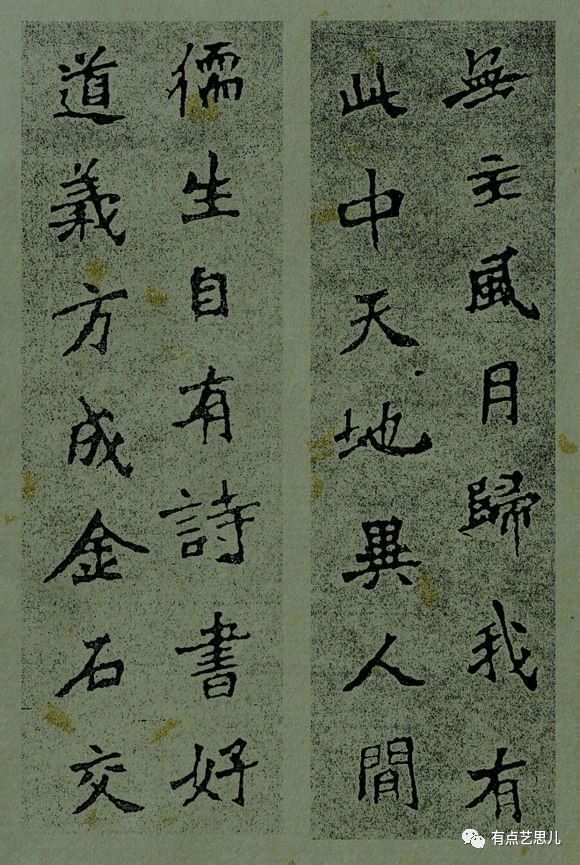 無主風月歸我有
此中天地異人間
儒生自有詩書好
道義方成金石交
有点艺思儿